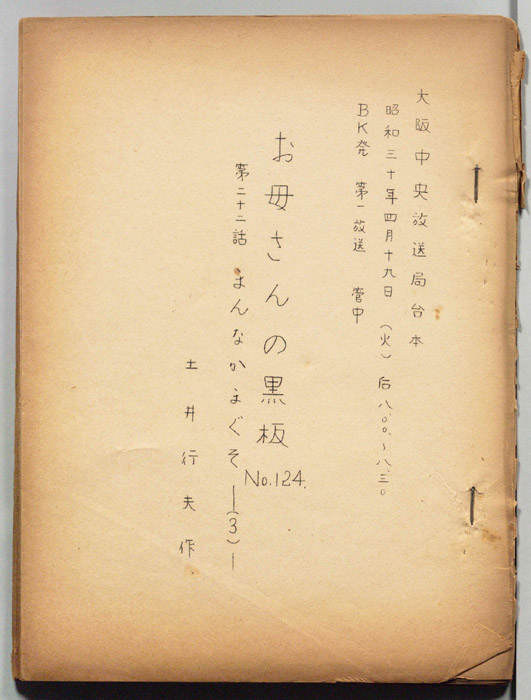 大阪中央放送局台本
昭和三十年四月十九日（火）后八、〇〇〜八、三〇
BK発 第一放送 管中
お母さんの黒板
No.124.
第二十二話 まんなかまぐそ―（3）―
土井行夫作